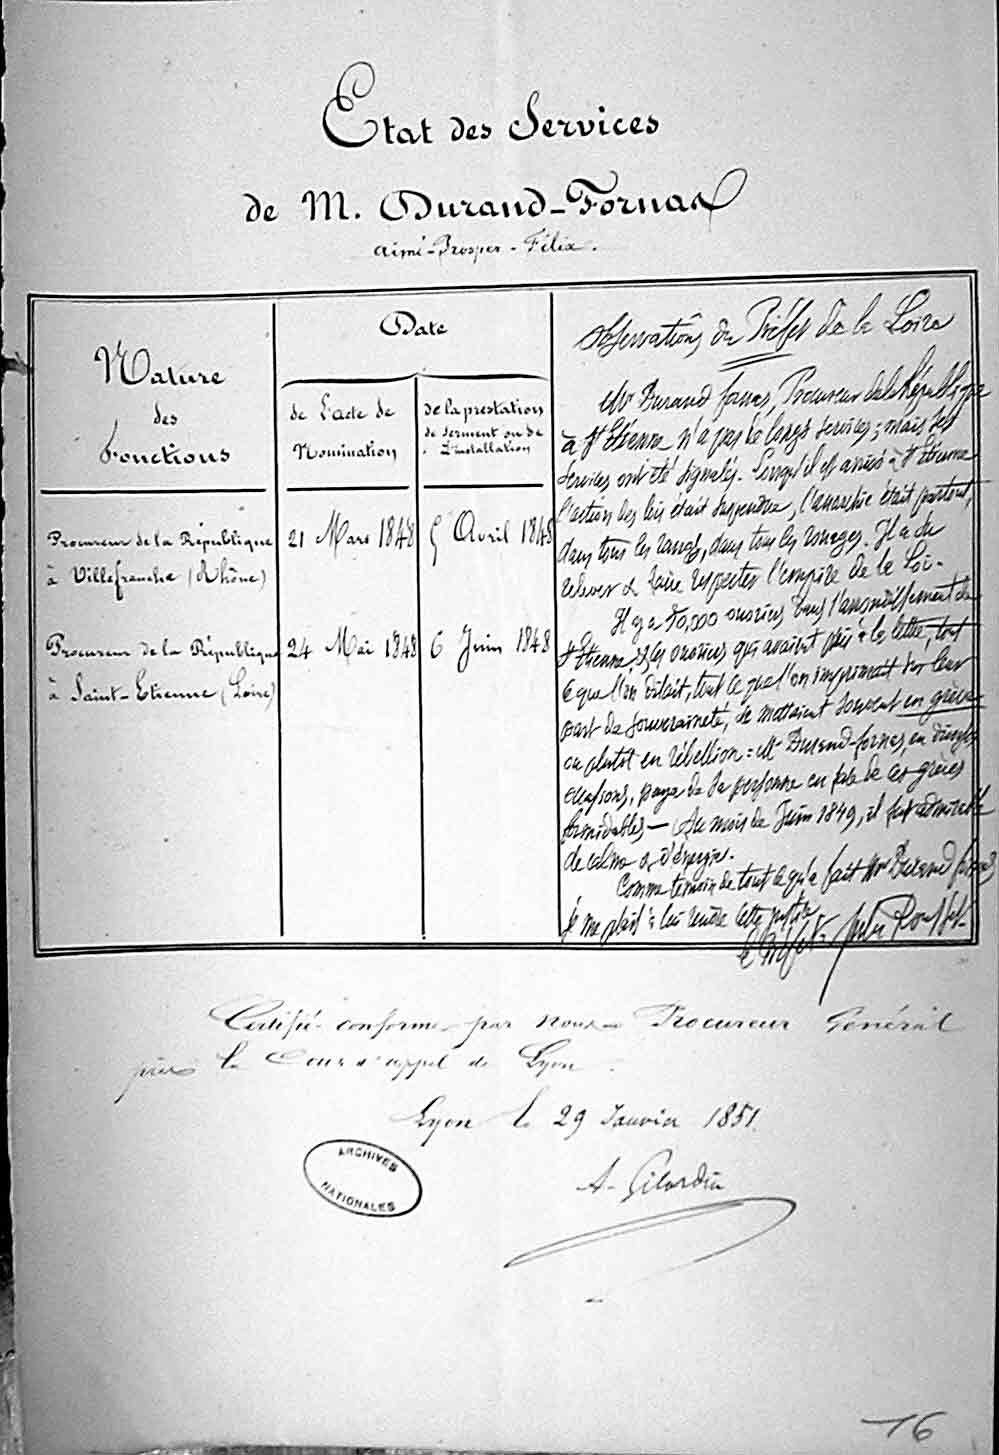 Etat des Services
de M. Durand-Fornas
aimé-Prosper-Félix.
Nature
des
Fonctions
Date
de l'acte de
Nomination
de la prestation
de serment ou de
l'installation
Procureur de la République
à Villefranche (Rhône)
21 Mars 1848
5 Avril 1848
Procureur de la République
à Saint-Etienne (Loire)
24 Mai 1848
6 Juin 1848
Observations du Préfet de la Loire
Mr Durand fornas, Procureur de la République
à St Etienne n'a pas de longs services; mais ses
services ont été signalés. Lorsqu'il est arrivé à St Etienne
l'action des lois était suspendue, l'anarchie était partout,
dans tous les rangs, dans tous les rouages. Il a du
relever & faire respecter l'empire de la Loi.
Il y a 50,000 ouvriers dans l'arrondissement de
St Etienne, & les ouvriers qui avaient pris à la lettre, tout
ce que l'on disait, tout ce que l'on imprimait sur leur
part de souveraineté, se mettaient souvent en grève
ou plutôt en rébellion: Mr Durand-fornas, en diverses
occasions, paya de sa personne en face de ces grèves
formidables — Au mois de Juin 1849, il fut admirable
de calme & d'énergie.
Comme témoin de tout ce qu'a fait Mr Durand fornas
je me plais à lui rendre cette justice
le Préfet
Certifié conforme par nous Procureur Général
près la Cour d'appel de Lyon.
Lyon le 29 Janvier 1851.
A. Gilardin
ARCHIVES
NATIONALES
16